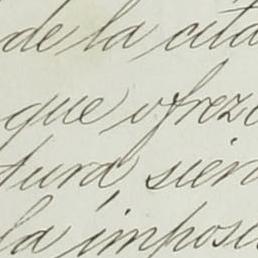 de la cita
que ofrezc
tura, sien
la imposi